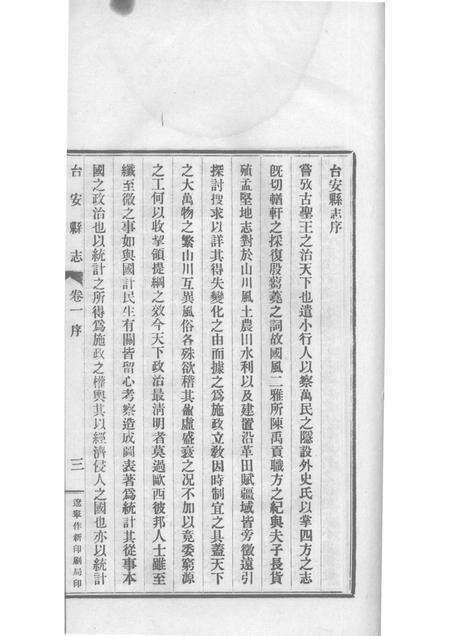 台安縣志序
嘗攷古聖王之治天下也遣小行人以察萬民之隱設外史氏以掌四方之志
旣切輶軒之採復殷蒭蕘之詞故國風二雅所陳禹貢職方之紀與夫子長貨
殖孟堅地志對於山川風土農田水利以及建置沿革田賦疆域皆旁徵遠引
探討搜求以詳其得失變化之由而據之爲施政立敎因時制宜之具蓋天下
之大萬物之繁山川互異風俗各殊欲稽其盈虛盛衰之况不加以竟委窮源
之工何以收挈領提綱之效今天下政治最淸明者莫過歐西彼邦人士雖至
纖至微之事如與國計民生有關皆留心考察造成圖表著爲統計其從事本
國之政治也以統計之所得爲施政之權輿其以經濟侵人之國也亦以統計
台安縣志 卷一序 三 遼寧作新印刷局印